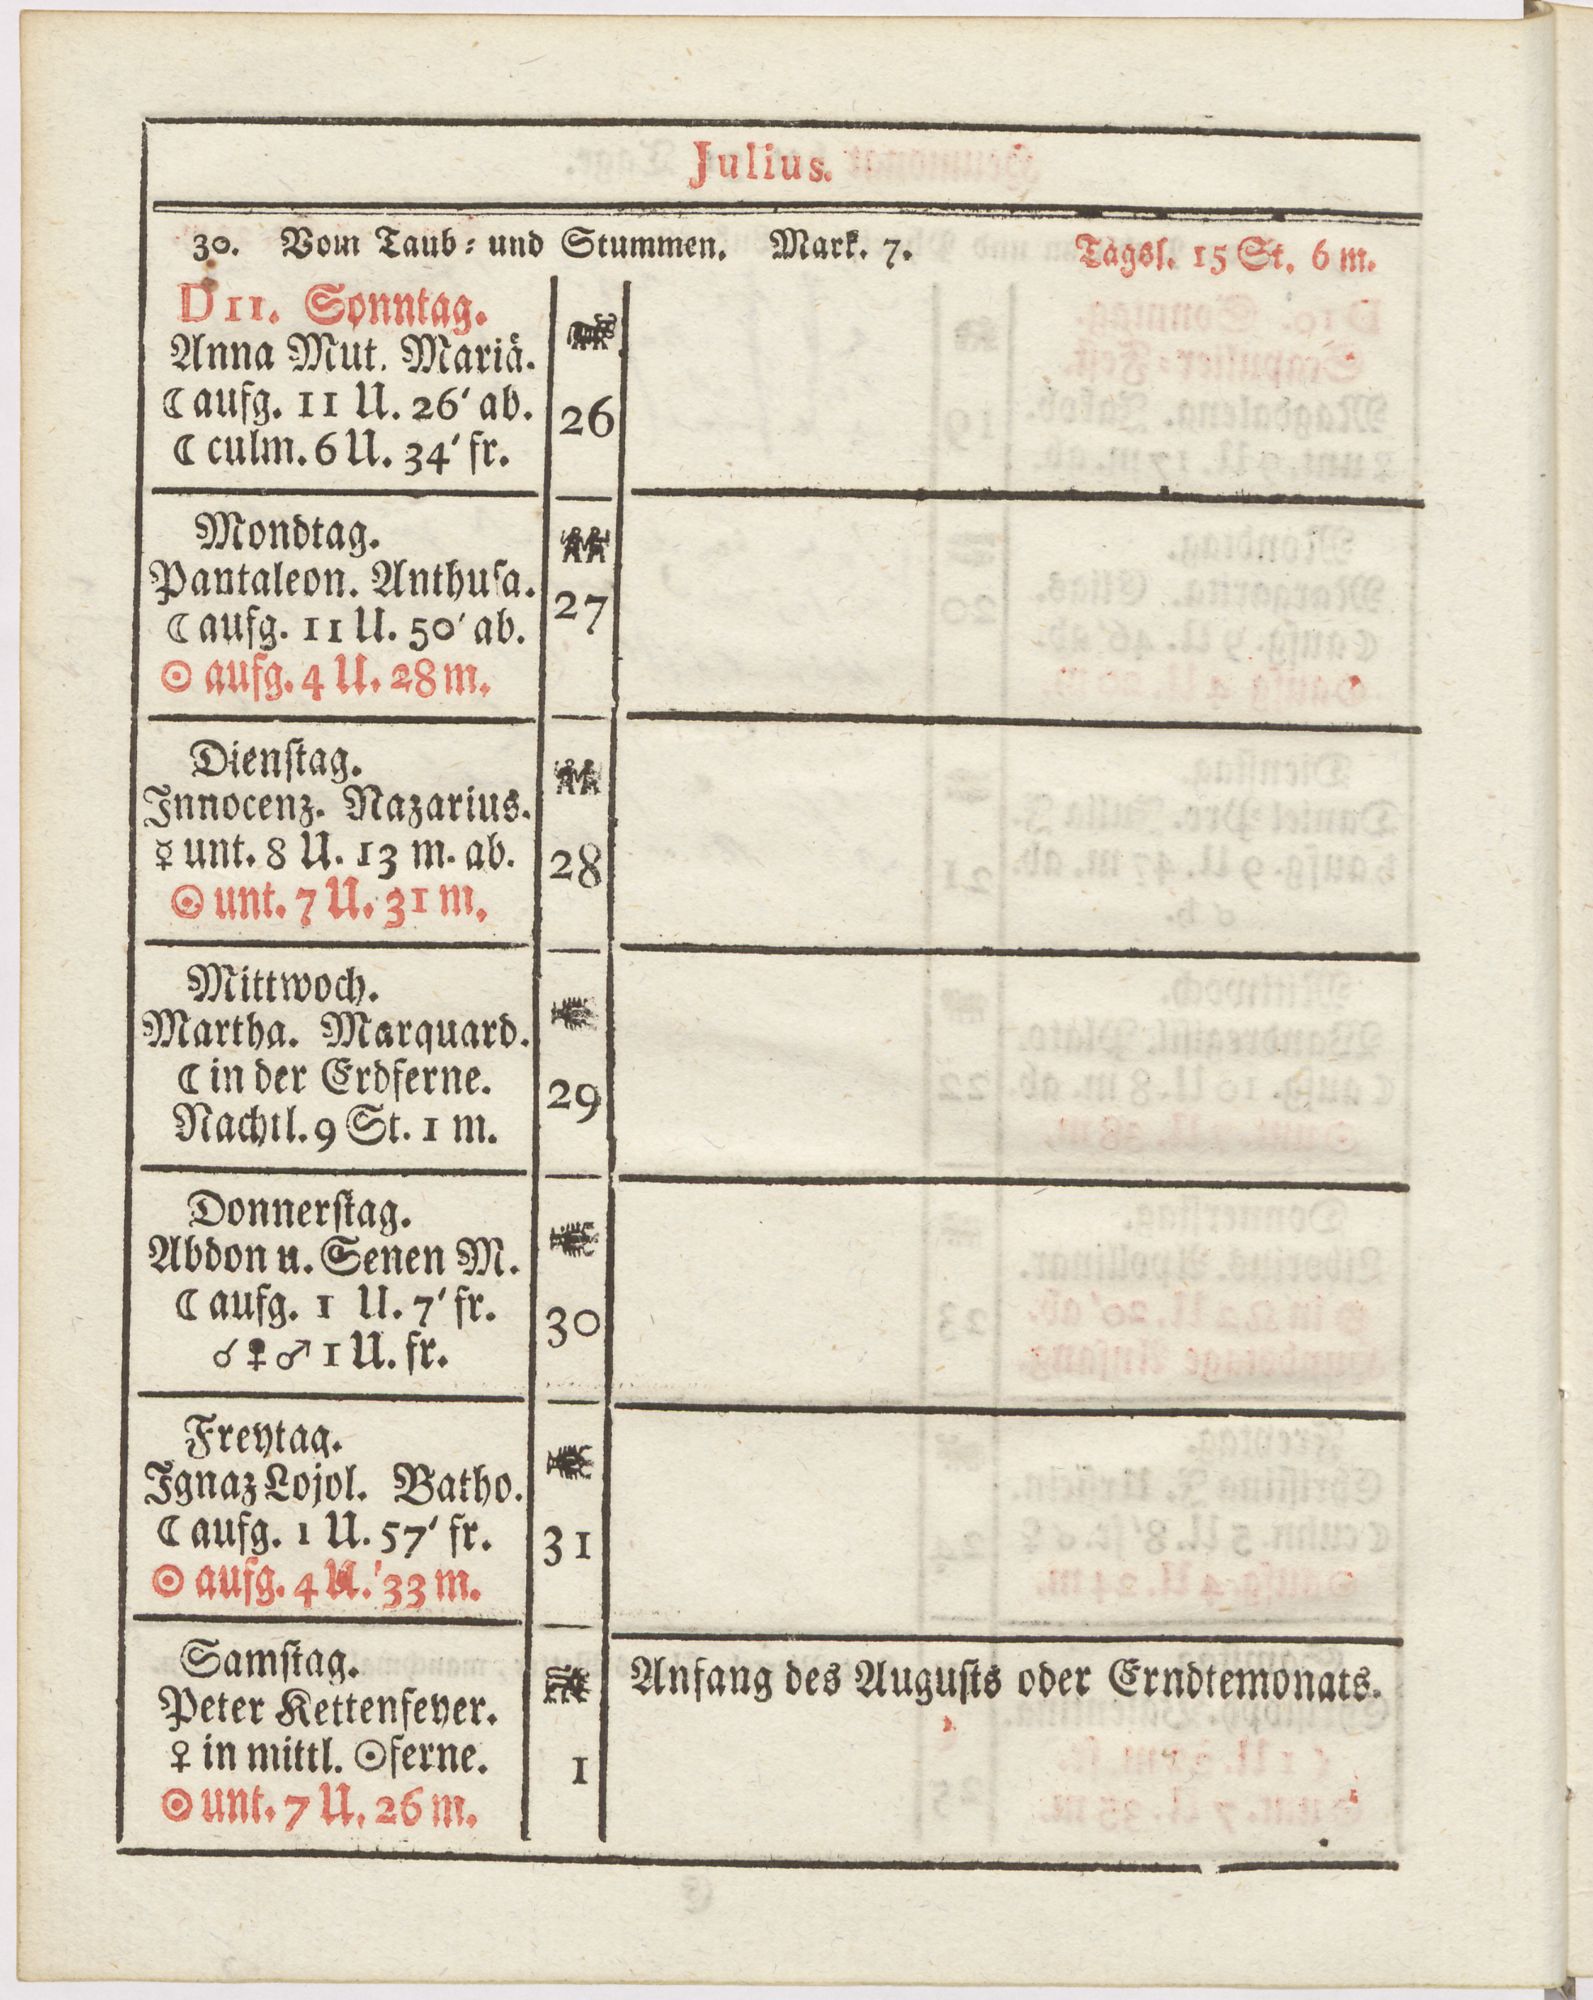 Julius.
30. Vom Taub- und Stummen. Mark. 7. Tagsl. 15 St. 6 m.
D 11. Sonntag.
Anna Mut. Mariä.
☾ aufg. 11 U. 26′ ab.
☾ culm. 6 U. 34′ fr.
26
Mondtag.
Pantaleon. Anthusa.
☾ aufg. 11 U. 50′ ab.
☉ aufg. 4 U. 28 m.
27
Dienſtag.
Innocenz. Nazarius.
☿ unt. 8 U. 13 m. ab.
☉ unt. 7 U. 31 m.
28
Mittwoch.
Martha. Marquard.
☾ in der Erdferne.
Nachtl. 9 St. 1 m.
29
Donnerſtag.
Abdon u. Senen M.
☾ aufg. 1 U. 7′ fr.
☌ ♀ ♂ 1 U. fr.
30
Freytag.
Ignaz Lojol. Batho.
☾ aufg. 1 U. 57′ fr.
☉ aufg. 4 U. 33 m.
31
Samſtag.
Peter Kettenfeyer.
♀ in mittl. ☉ferne.
☉ unt. 7 U. 26 m.
1
Anfang des Auguſts oder Erndtemonats.